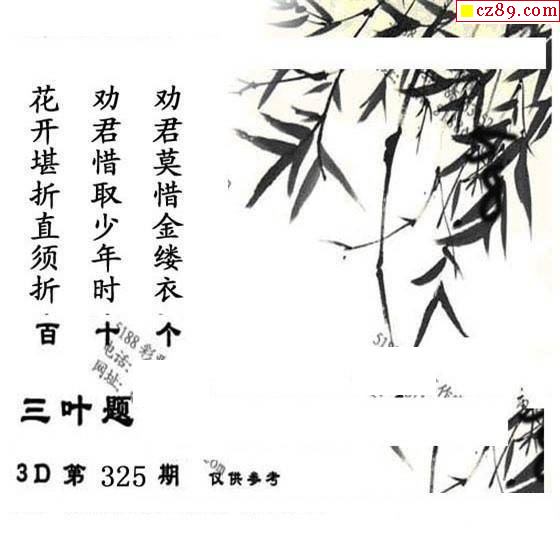 cz89.com
劝君莫惜金缕衣
劝君惜取少年时
花开堪折直须折
百 十 个
5188 彩
电话:
网址:
三叶题
3D 第 325 期 仅供参考